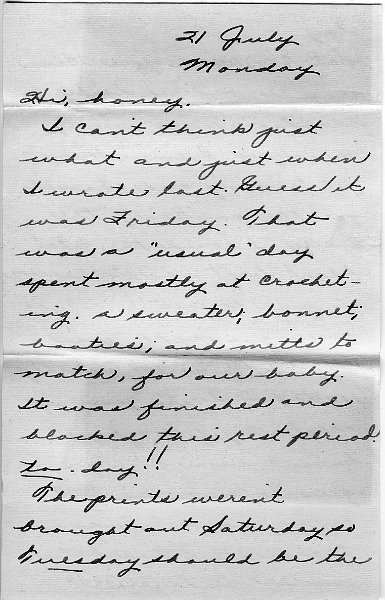 21 July
Monday
Hi, honey.
I can't think just
what and just when
I wrote last. Guess it
was Friday. That
was a "usual" day
spent mostly at crochet-
ing. a sweater, bonnet,
booties, and mitts to
match, for our baby.
It was finished and
blocked this rest period.
to-day!!
The prints werent
brought out Saturday so
Tuesday should be the